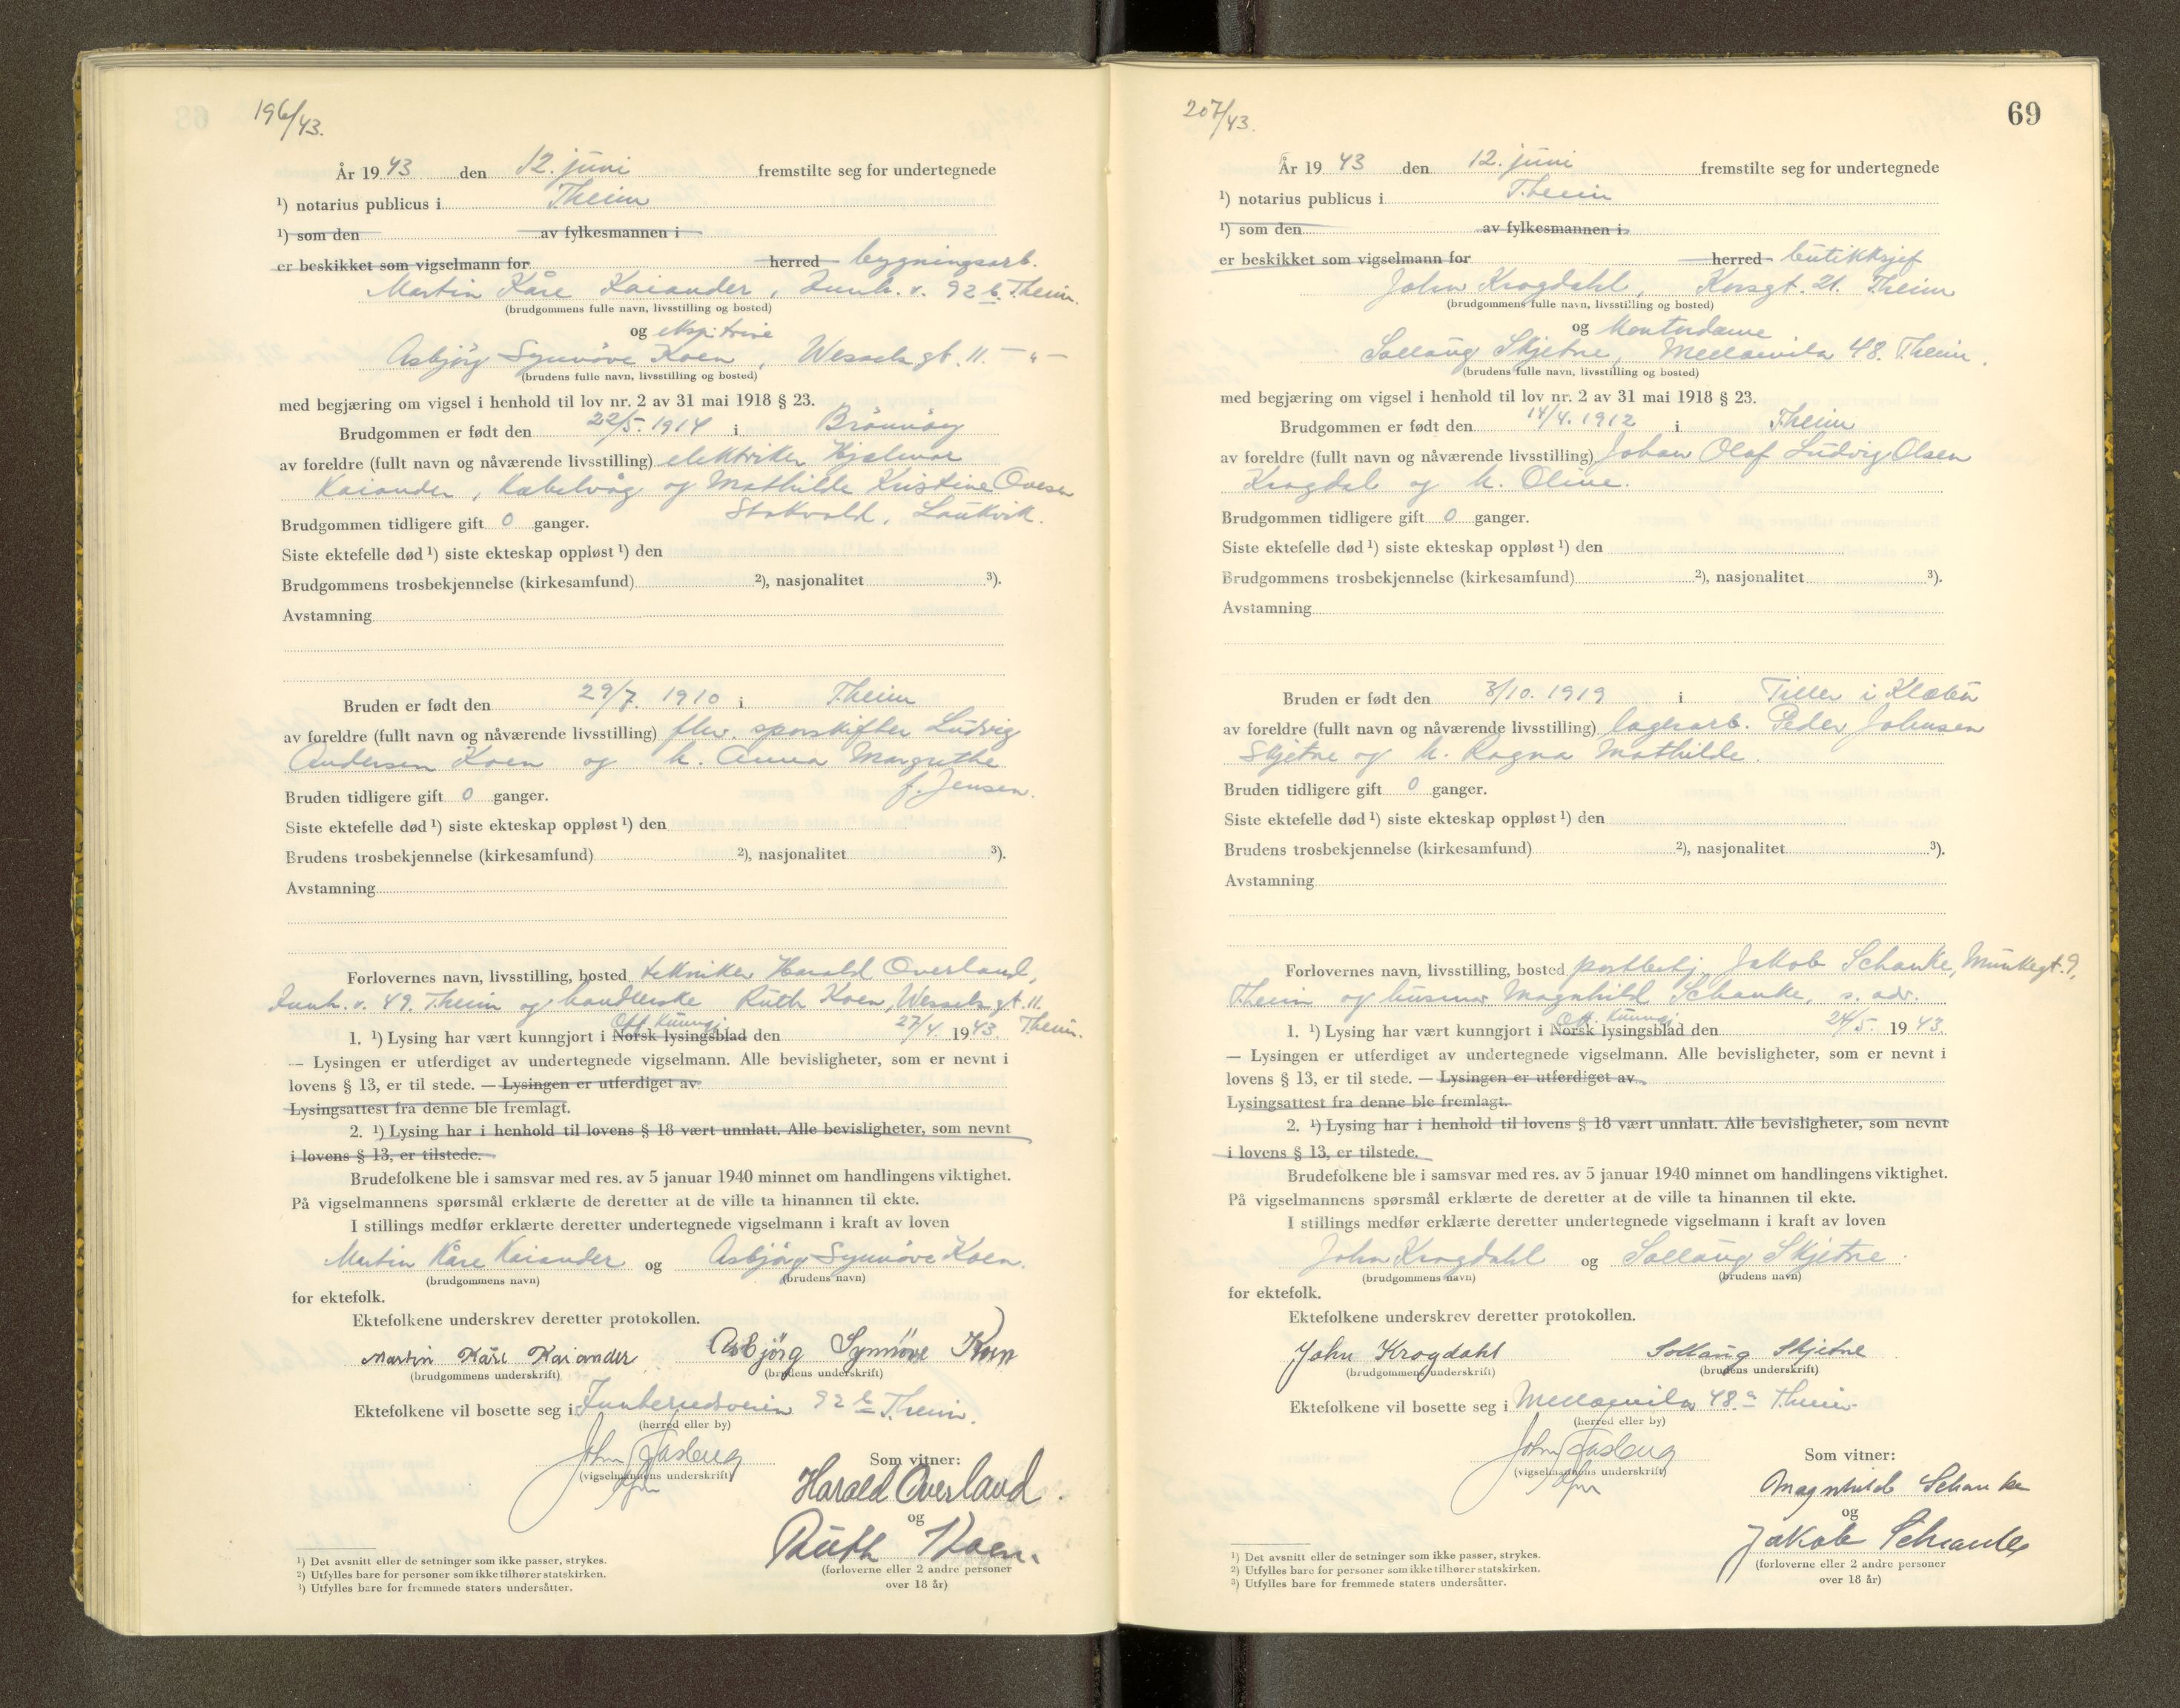 196/43.
År 1943 den 12. juni fremstilte seg for undertegnede
¹) notarius publicus i Theim
¹) som den av fylkesmannen i
er beskikket som vigselmann for herred bygningsarb.
Martin Kåre Kaiander, Innh. v. 92 b. Theim.
(brudgommens fulle navn, livsstilling og bosted)
og eksp.trise
Asbjörg Synnöve Koen, Wessels gt. 11. — " —
(brudens fulle navn, livsstilling og bosted)
med begjæring om vigsel i henhold til lov nr. 2 av 31 mai 1918 § 23.
Brudgommen er født den 22/5. 1914 i Brönnöy
av foreldre (fullt navn og nåværende livsstilling) elektriker Hjalmar
Kaiander, Kabelvåg og Mathilde Kristine Ovesen
Stokvold, Laukvik.
Brudgommen tidligere gift 0 ganger.
Siste ektefelle død ¹) siste ekteskap oppløst ¹) den
Brudgommens trosbekjennelse (kirkesamfund) ²), nasjonalitet ³).
Avstamning
Bruden er født den 29/7. 1910 i Theim
av foreldre (fullt navn og nåværende livsstilling) fhv. sporskifter Ludvig
Andersen Koen og h. Anna Margrethe
f. Jensen.
Bruden tidligere gift 0 ganger.
Siste ektefelle død ¹) siste ekteskap oppløst ¹) den
Brudens trosbekjennelse (kirkesamfund) ²), nasjonalitet ³).
Avstamning
Forlovernes navn, livsstilling, bosted tekniker Harald Overland,
Innh. v. 49. Theim og handlerske Ruth Koen, Wessels gt. 11.
Off. Kunngj. Theim.
1. ¹) Lysing har vært kunngjort i Norsk lysingsblad den 27/4. 1943.
— Lysingen er utferdiget av undertegnede vigselmann. Alle bevisligheter, som er nevnt i
lovens § 13, er til stede. — Lysingen er utferdiget av
Lysingsattest fra denne ble fremlagt.
2. ¹) Lysing har i henhold til lovens § 18 vært unnlatt. Alle bevisligheter, som nevnt
i lovens § 13, er tilstede.
Brudefolkene ble i samsvar med res. av 5 januar 1940 minnet om handlingens viktighet.
På vigselmannens spørsmål erklærte de deretter at de ville ta hinannen til ekte.
I stillings medfør erklærte deretter undertegnede vigselmann i kraft av loven
Martin Kåre Kaiander og Asbjörg Synnöve Koen.
(brudgommens navn) (brudens navn)
for ektefolk.
Ektefolkene underskrev deretter protokollen.
Martin Kåre Kaiander Asbjörg Synnöve Koen
(brudgommens underskrift) (brudens underskrift)
Ektefolkene vil bosette seg i Innherredsveien 92 b Theim.
(herred eller by)
John Fasberg
(vigselmannens underskrift)
Som vitner:
Harald Overland.
og
Ruth Koen.
(forloverne eller 2 andre personer
over 18 år)
¹) Det avsnitt eller de setninger som ikke passer, strykes.
²) Utfylles bare for personer som ikke tilhører statskirken.
³) Utfylles bare for fremmede staters undersåtter.
207/43.
69
År 1943 den 12. juni fremstilte seg for undertegnede
¹) notarius publicus i Theim
¹) som den av fylkesmannen i
er beskikket som vigselmann for herred butikksjef
John Krogdahl, Korsgt. 21. Theim
(brudgommens fulle navn, livsstilling og bosted)
og Kontordame
Sollaug Skjetne, Mellomila 48. Theim.
(brudens fulle navn, livsstilling og bosted)
med begjæring om vigsel i henhold til lov nr. 2 av 31 mai 1918 § 23.
Brudgommen er født den 14/4. 1912 i Theim
av foreldre (fullt navn og nåværende livsstilling) Johan Olaf Ludvig Olsen
Krogdal og h. Oline.
Brudgommen tidligere gift 0 ganger.
Siste ektefelle død ¹) siste ekteskap oppløst ¹) den
Brudgommens trosbekjennelse (kirkesamfund) ²), nasjonalitet ³).
Avstamning
Bruden er født den 3/10. 1919 i Tiller i Klæbu
av foreldre (fullt navn og nåværende livsstilling) lagerarb. Peder Johnsen
Skjetne og h. Ragna Mathilde.
Bruden tidligere gift 0 ganger.
Siste ektefelle død ¹) siste ekteskap oppløst ¹) den
Brudens trosbekjennelse (kirkesamfund) ²), nasjonalitet ³).
Avstamning
Forlovernes navn, livsstilling, bosted postbetj. Jakob Schanke, Munkegt. 9,
Theim og husmor Magnhild Schanke, s. adr.
Off. Kunngj.
1. ¹) Lysing har vært kunngjort i Norsk lysingsblad den 24/5. 1943.
— Lysingen er utferdiget av undertegnede vigselmann. Alle bevisligheter, som er nevnt i
lovens § 13, er til stede. — Lysingen er utferdiget av
Lysingsattest fra denne ble fremlagt.
2. ¹) Lysing har i henhold til lovens § 18 vært unnlatt. Alle bevisligheter, som nevnt
i lovens § 13, er tilstede.
Brudefolkene ble i samsvar med res. av 5 januar 1940 minnet om handlingens viktighet.
På vigselmannens spørsmål erklærte de deretter at de ville ta hinannen til ekte.
I stillings medfør erklærte deretter undertegnede vigselmann i kraft av loven
John Krogdahl og Sollaug Skjetne.
(brudgommens navn) (brudens navn)
for ektefolk.
Ektefolkene underskrev deretter protokollen.
John Krogdahl Sollaug Skjetne
(brudgommens underskrift) (brudens underskrift)
Ektefolkene vil bosette seg i Mellomila 48. a Theim
(herred eller by)
John Fasberg
(vigselmannens underskrift)
Som vitner:
Magnhild Schanke
og
Jakob Schanke
(forloverne eller 2 andre personer
over 18 år)
¹) Det avsnitt eller de setninger som ikke passer, strykes.
²) Utfylles bare for personer som ikke tilhører statskirken.
³) Utfylles bare for fremmede staters undersåtter.